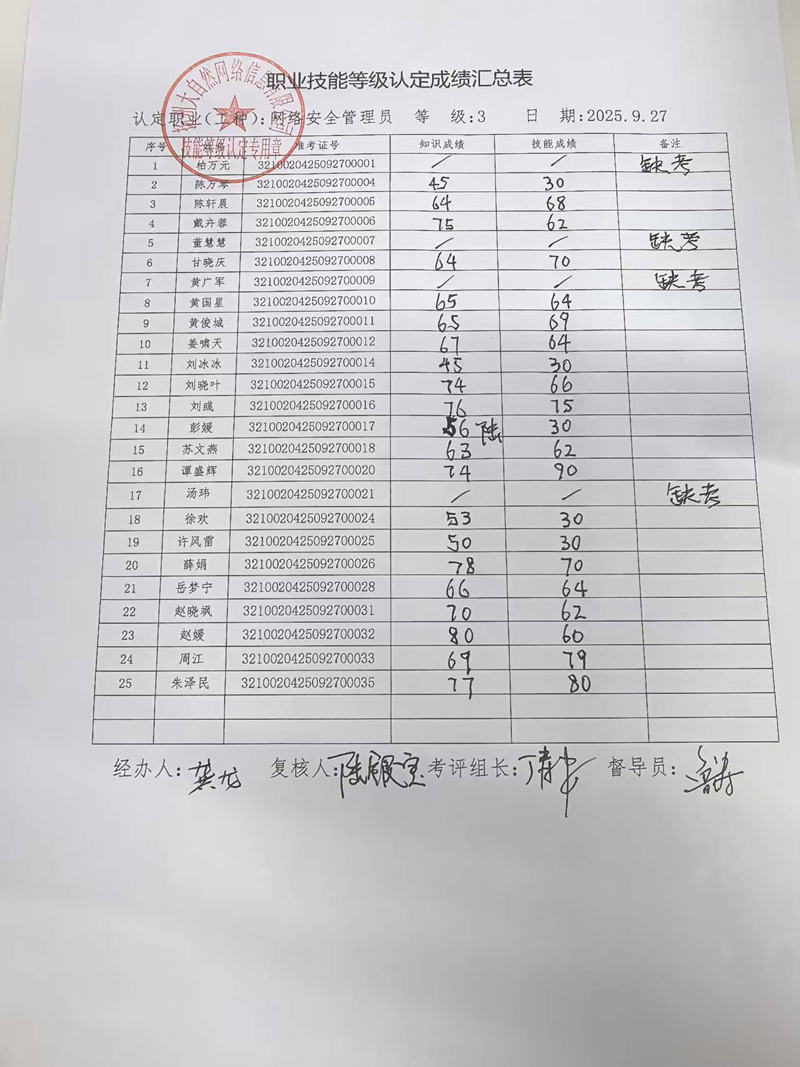 职业技能等级认定成绩汇总表
认定职业(工种): 网络安全管理员 等 级:3 日 期:2025.9.27
大自然网络信息有限公司
技能等级认定专用章
序号 准考证号 知识成绩 技能成绩 备注
1 柏万元 3210020425092700001 / / 缺考
2 陈万琴 3210020425092700004 45 30
3 陈轩晨 3210020425092700005 64 68
4 戴卉蓉 3210020425092700006 75 62
5 董慧慧 3210020425092700007 / / 缺考
6 甘晓庆 3210020425092700008 64 70
7 黄广军 3210020425092700009 / / 缺考
8 黄国星 3210020425092700010 65 64
9 黄俊城 3210020425092700011 65 69
10 姜啸天 3210020425092700012 67 64
11 刘冰冰 3210020425092700014 45 30
12 刘晓叶 3210020425092700015 74 66
13 刘彧 3210020425092700016 76 75
14 彭媛 3210020425092700017 56 陆 30
15 苏文燕 3210020425092700018 63 62
16 谭盛辉 3210020425092700020 74 90
17 汤玮 3210020425092700021 / / 缺考
18 徐欢 3210020425092700024 53 30
19 许风雷 3210020425092700025 50 30
20 薛娟 3210020425092700026 78 70
21 岳梦宁 3210020425092700028 66 64
22 赵晓飒 3210020425092700031 70 62
23 赵媛 3210020425092700032 80 60
24 周江 3210020425092700033 69 79
25 朱泽民 3210020425092700035 77 80
经办人: 龚龙 复核人: 陆银宽 考评组长: 督导员: